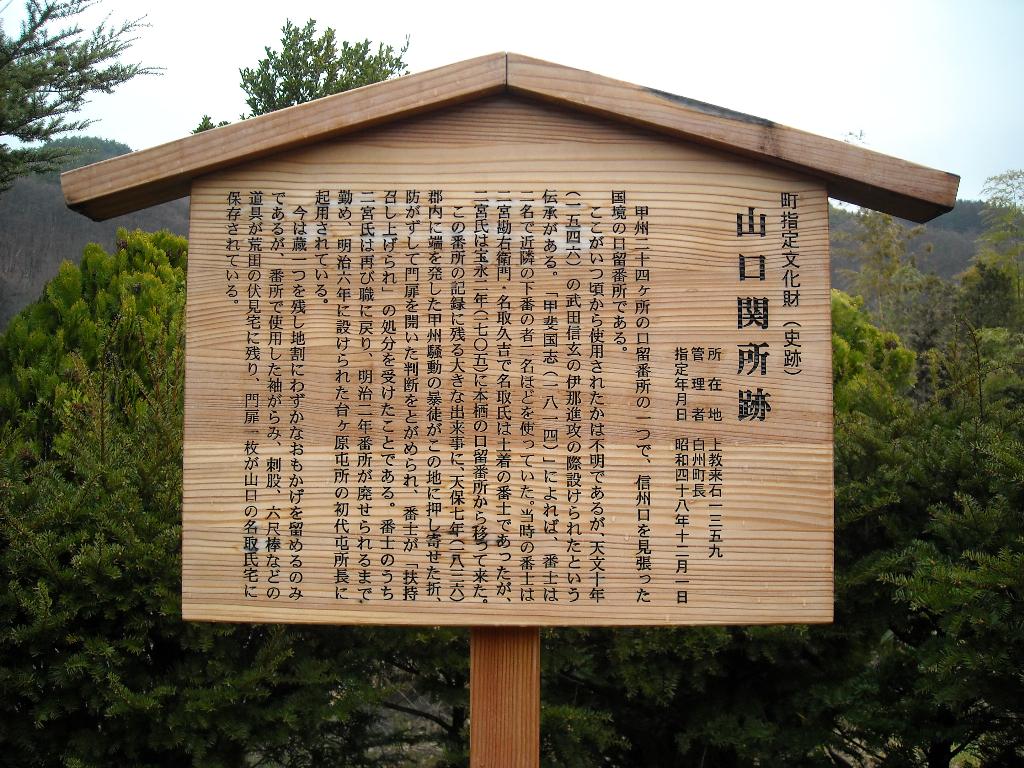 町指定文化財（史跡）
山口関所跡
所在地　上教来石一三五九
管理者　白州町長
指定年月日　昭和四十八年十二月一日
甲州二十四ヶ所の口留番所の一つで、信州口を見張った
国境の口留番所である。
ここがいつ頃から使用されたかは不明であるが、天文十年
（一五四一）の武田信玄の伊那進攻の際設けられたという
伝承がある。「甲斐国志（一八一四）」によれば、番士は
二名で近隣の下番の者一名ほどを使っていた。当時の番士は
二宮勘右衛門・名取久吉で名取氏は土着の番士であったが、
二宮氏は宝永二年（一七〇五）に本栖の口留番所から移って来た。
この番所の記録に残る大きな出来事に、天保七年（一八三六）
郡内に端を発した甲州騒動の暴徒がこの地に押し寄せた折、
防がずして門扉を開いた判断をとがめられ、番士が「扶持
召し上げられ」の処分を受けたことである。番士のうち
二宮氏は再び職に戻り、明治二年番所が廃せられるまで
勤め、明治六年に設けられた台ヶ原屯所の初代屯所長に
起用されている。
今は蔵一つを残し地割にわずかなおもかげを留めるのみ
であるが、番所で使用した袖がらみ、刺股、六尺棒などの
道具が荒田の伏見宅に残り、門扉一枚が山口の名取氏宅に
保存されている。